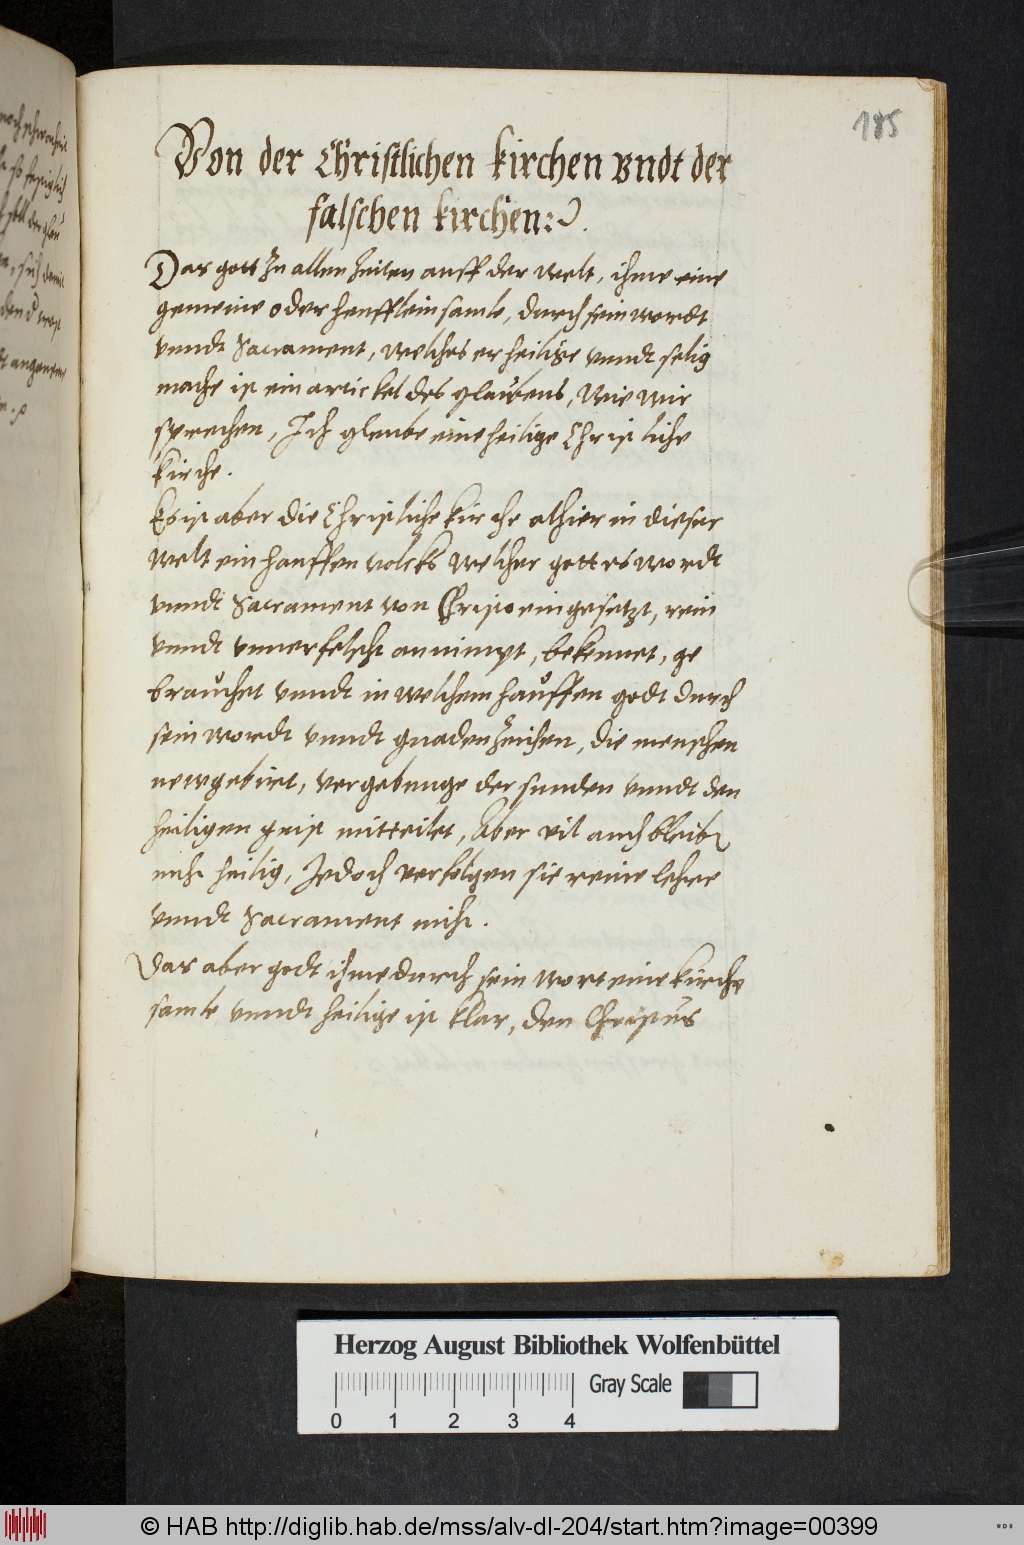 185
Von der Christlichen kirchen vndt der
falschen kirchen:
Das gott zu allen zeiten auff der welt, ihme eine
gemeine oder heufflein samle, durch sein wordt
vnndt Sacrament, welches er heilige vnndt selig
mache ist ein artickel des glaubens, Wie wir
sprechen, Ich gleube eine heilige Christliche
kirche.
Es ist aber die Christliche kirche alhier in dieser
welt ein hauffen volcks welcher gottes wordt
vnndt Sacrament von Christo eingesetzt, rein
vnndt vnuerfelscht annimpt, bekennet, ge
brauchet vnndt in welchem hauffen godt durch
sein wordt vnndt gnadenzeichen, die menschen
newgebirt, vergebunge der sunden vnndt den
heiligen geist mitteilet, Aber vil auch bleibe
nicht heilig, Jedoch verfolgen sie reine lehre
vnndt Sacrament nicht.
Das aber godt ihme durch sein wort eine kirche
samle vnndt heilige ist klar, den Christus
Herzog August Bibliothek Wolfenbüttel
Gray Scale
0 1 2 3 4
© HAB http://diglib.hab.de/mss/alv-dl-204/start.htm?image=00399